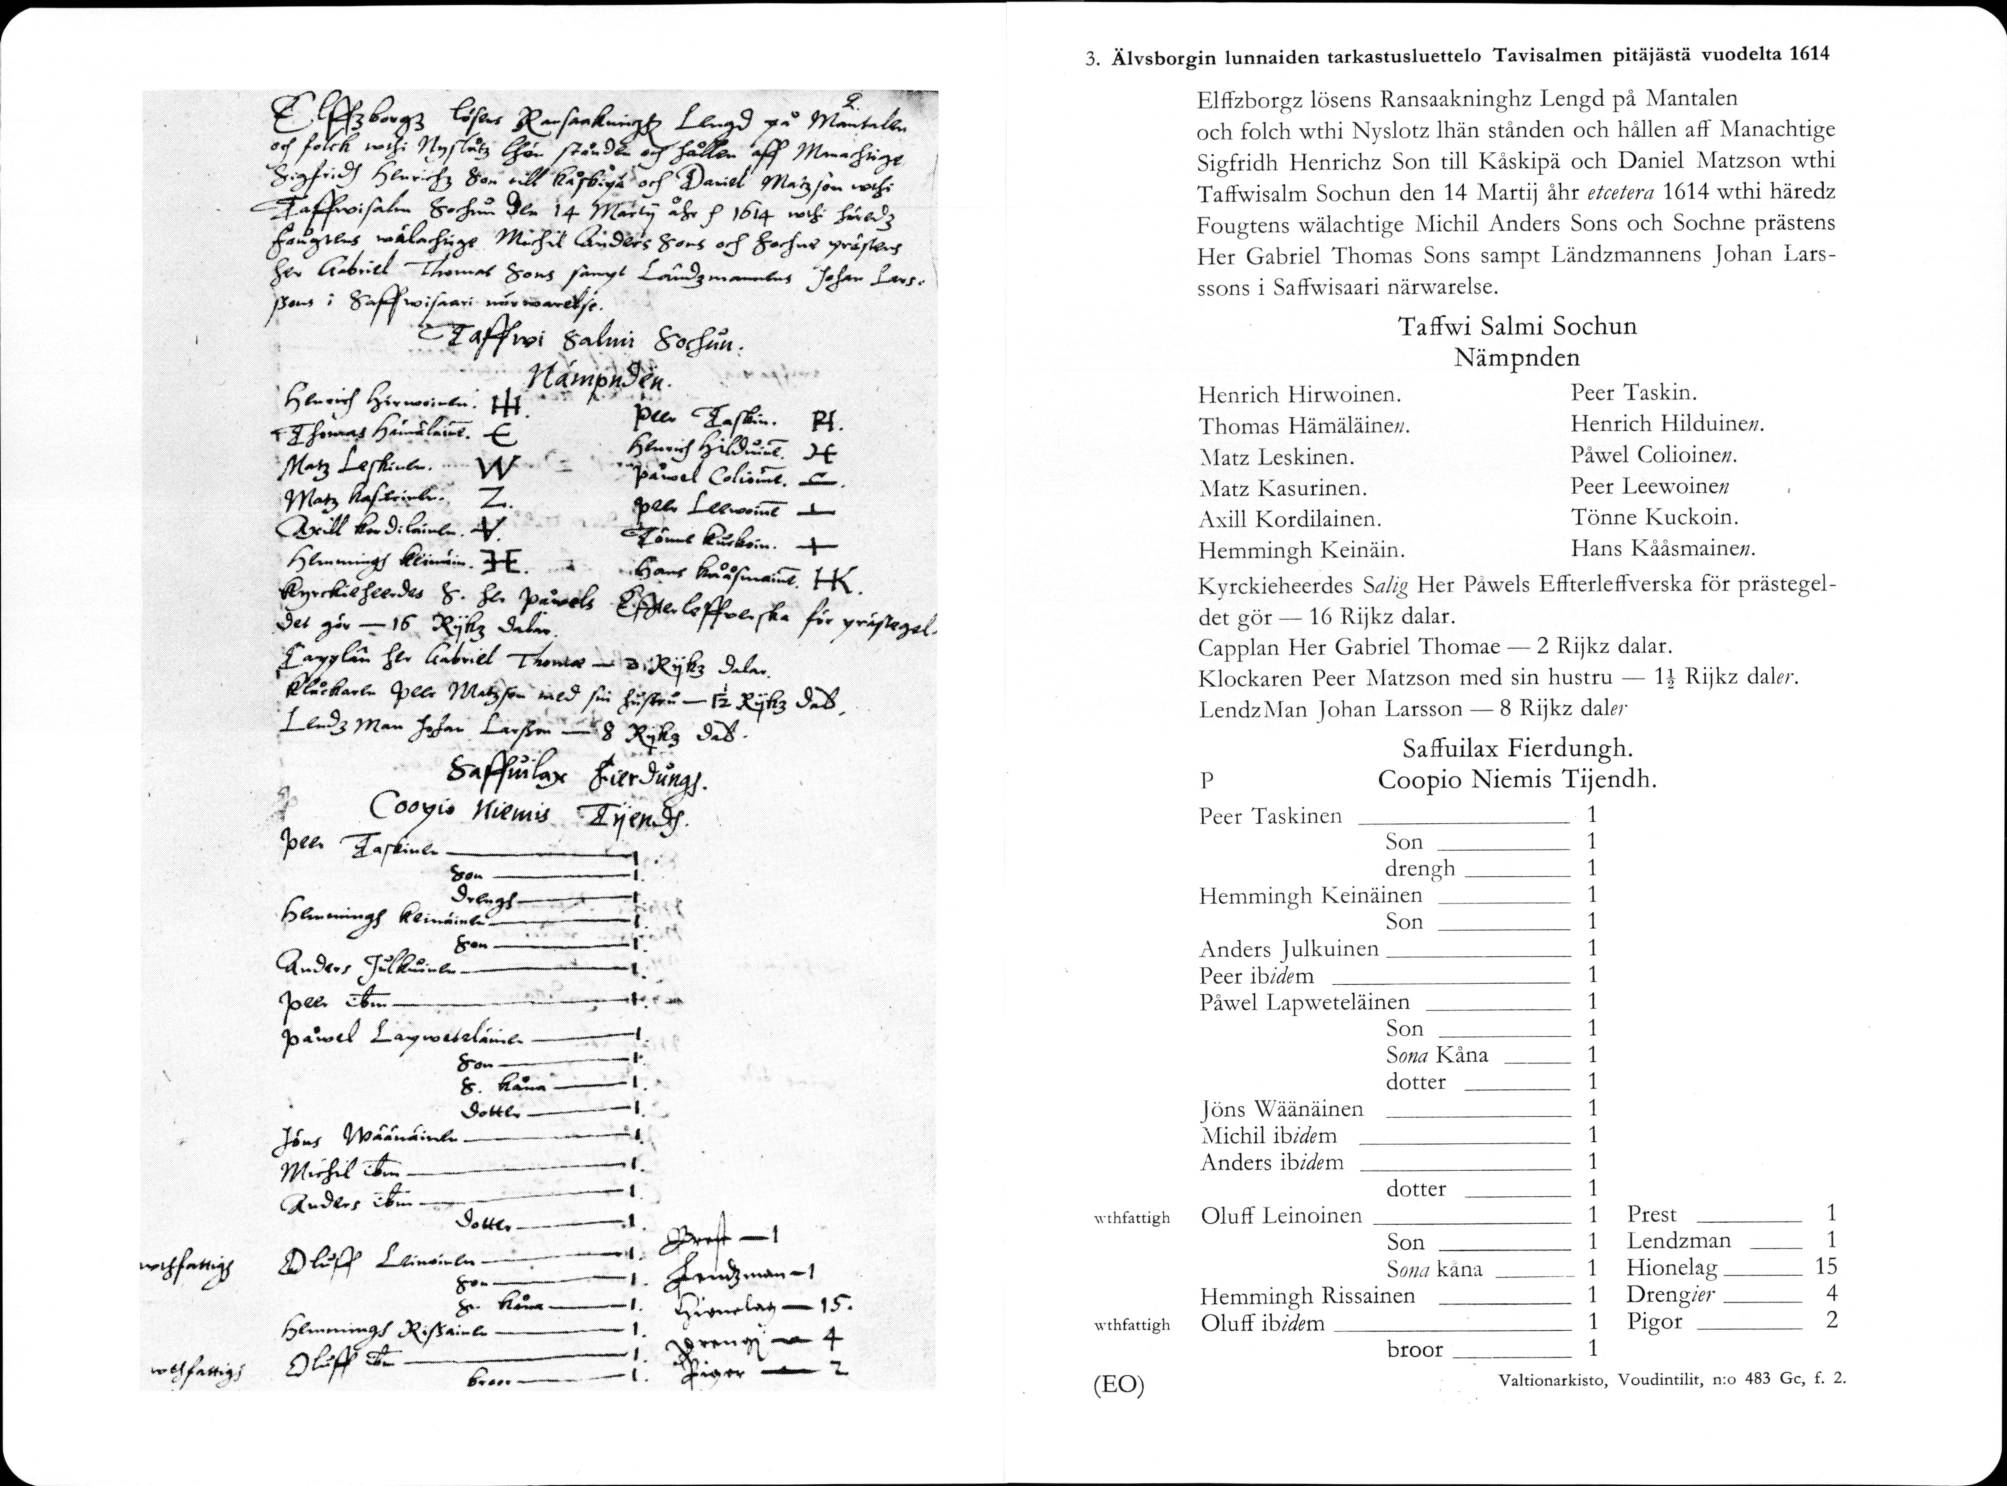 2.
Elffzborgz lösens Ransaakninghz Lengd på Mantalen
och folch wthi Nyslotz lhän stånden och hållen aff Manachtige
Sigfridh Henrichz Son till Kåskipä och Daniel Matzson wthi
Taffwisalm Sochun den 14 Martij åhr etc 1614 wthi häredz
Fougtens wälachtige Michil Anders Sons och Sochne prästens
Her Gabriel Thomas Sons sampt Ländzmannens Johan Lars-
ssons i Saffwisaari närwarelse.
Taffwi Salmi Sochun.
Nämpnden.
Henrich Hirwoinen. Peer Taskin.
Thomas Hämäläinē. Henrich Hilduinē.
Matz Leskinen. W Påwel Colioinē.
Matz Kasurinen. Z. Peer Leewoinē
Axill Kordilainen. Tönne Kuckoin.
Hemmingh Keinäin. Hans Kååsmainē. HK.
Kyrckieheerdes S. Her Påwels Effterleffverska för prästegel-
det gör — 16 Rijkz dalar.
Capplan Her Gabriel Thomae — 2 Rijkz dalar.
Klockaren Peer Matzson med sin hustru — 1½ Rijkz dal.
Lendz Man Johan Larsson — 8 Rijkz dal.
Saffuilax Fierdungh.
Coopio Niemis Tijendh.
Peer Taskinen — 1.
Son — 1.
drengh — 1
Hemmingh Keinäinen — 1.
Son — 1.
Anders Julkuinen — 1.
Peer ibm — 1.
Påwel Lapweteläinen — 1.
Son — 1.
S. Kåna — 1.
dotter — 1.
Jöns Wäänäinen — 1.
Michil ibm — 1.
Anders ibm — 1.
dotter — 1. Prest — 1
wthfattigh Oluff Leinoinen — 1. Lendzman — 1
Son — 1.
S. kåna — 1. Hionelag — 15.
Hemmingh Rissainen — 1. Drengi — 4
wthfattigh Oluff ibm — 1. Pigor — 2
broor — 1.
3. Älvsborgin lunnaiden tarkastusluettelo Tavisalmen pitäjästä vuodelta 1614
Elffzborgz lösens Ransaakninghz Lengd på Mantalen
och folch wthi Nyslotz lhän stånden och hållen aff Manachtige
Sigfridh Henrichz Son till Kåskipä och Daniel Matzson wthi
Taffwisalm Sochun den 14 Martij åhr etcetera 1614 wthi häredz
Fougtens wälachtige Michil Anders Sons och Sochne prästens
Her Gabriel Thomas Sons sampt Ländzmannens Johan Lars-
ssons i Saffwisaari närwarelse.
Taffwi Salmi Sochun
Nämpnden
Henrich Hirwoinen. Peer Taskin.
Thomas Hämäläinen. Henrich Hilduinen.
Matz Leskinen. Påwel Colioinen.
Matz Kasurinen. Peer Leewoinen
Axill Kordilainen. Tönne Kuckoin.
Hemmingh Keinäin. Hans Kååsmainen.
Kyrckieheerdes Salig Her Påwels Effterleffverska för prästegel-
det gör — 16 Rijkz dalar.
Capplan Her Gabriel Thomae — 2 Rijkz dalar.
Klockaren Peer Matzson med sin hustru — 1½ Rijkz daler.
LendzMan Johan Larsson — 8 Rijkz daler
Saffuilax Fierdungh.
P Coopio Niemis Tijendh.
Peer Taskinen 1
Son 1
drengh 1
Hemmingh Keinäinen 1
Son 1
Anders Julkuinen 1
Peer ibidem 1
Påwel Lapweteläinen 1
Son 1
Sona Kåna 1
dotter 1
Jöns Wäänäinen 1
Michil ibidem 1
Anders ibidem 1
dotter 1
wthfattigh Oluff Leinoinen 1 Prest 1
Son 1 Lendzman 1
Sona kåna 1 Hionelag 15
Hemmingh Rissainen 1 Drengier 4
wthfattigh Oluff ibidem 1 Pigor 2
broor 1
(EO) Valtionarkisto, Voudintilit, n:o 483 Gc, f. 2.